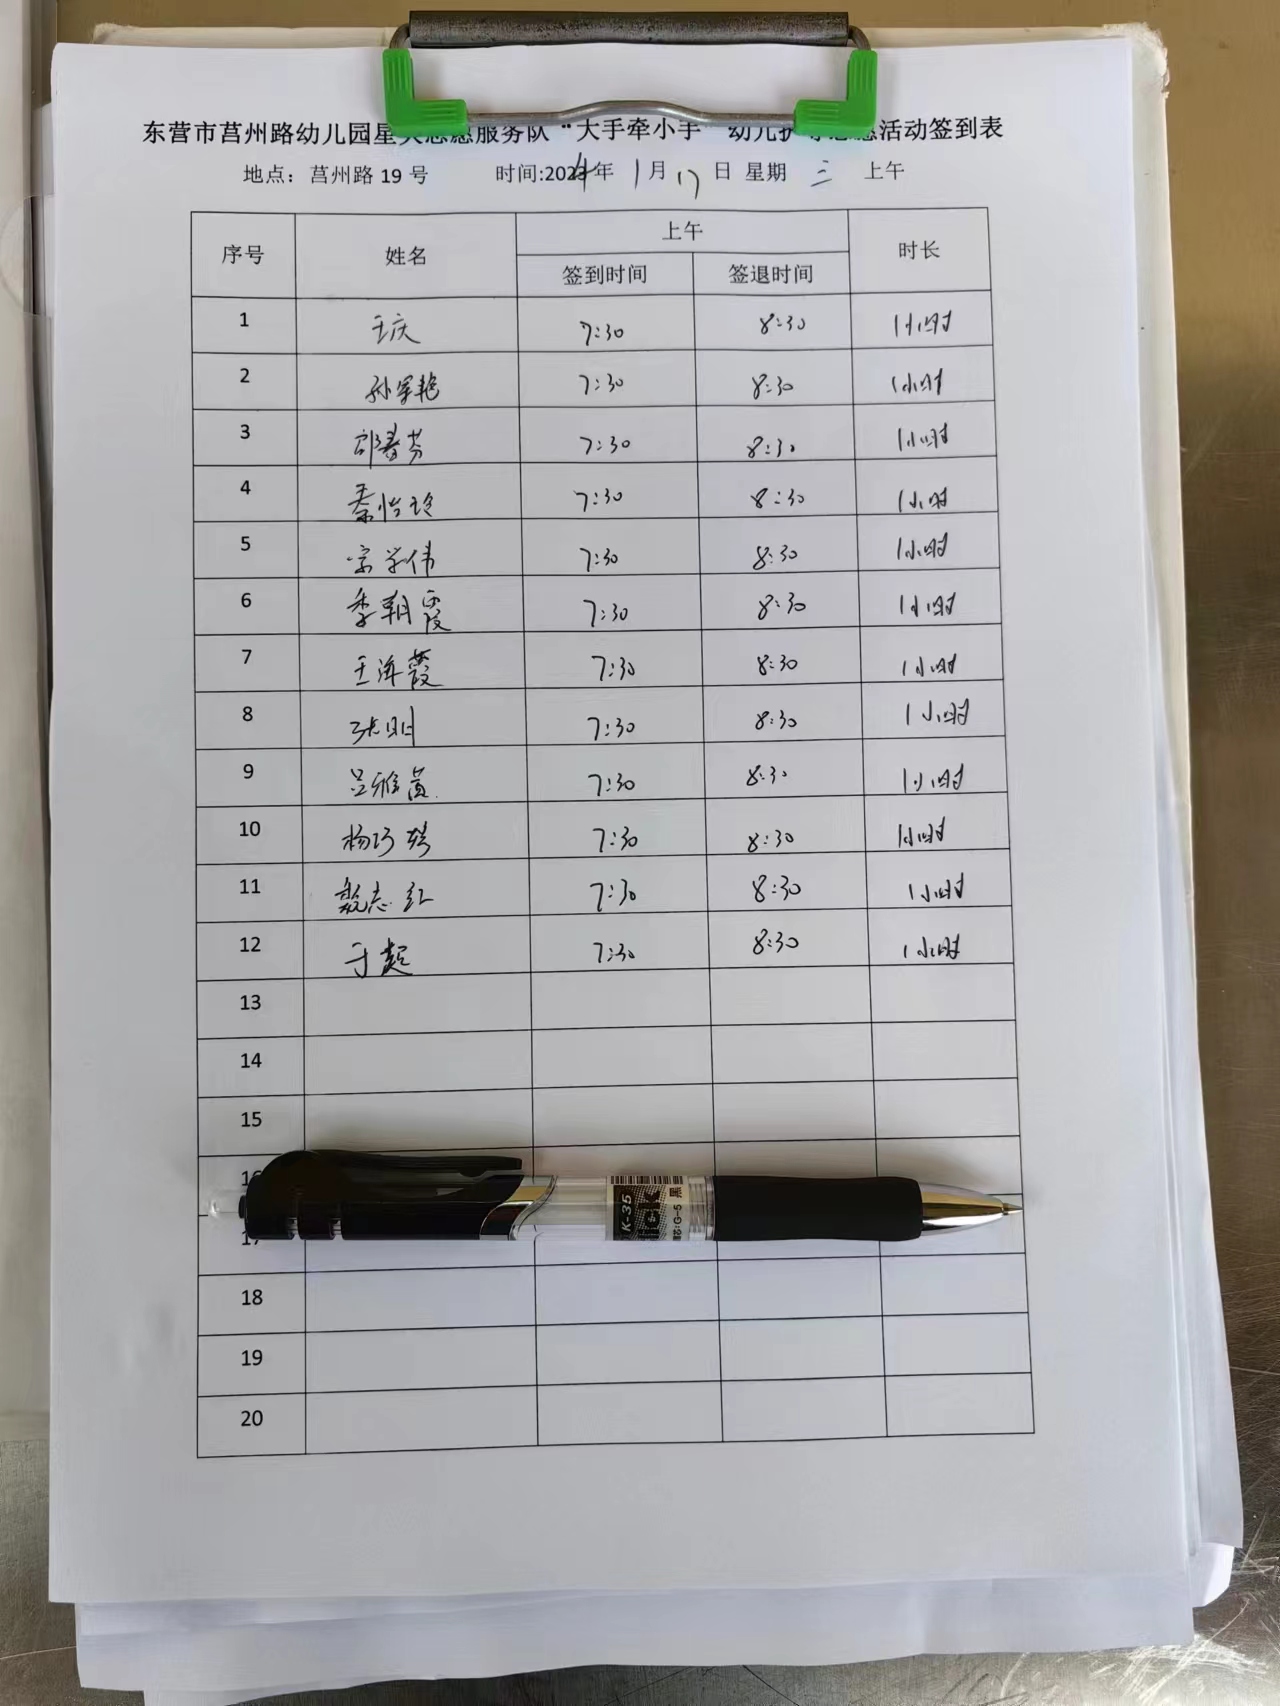 东营市莒州路幼儿园星火志愿服务队“大手牵小手”幼儿护导志愿活动签到表
地点：莒州路 19 号 时间:2024年 1月 17日 星期 三 上午
序号 姓名 上午 时长
签到时间 签退时间
1 王庆 7:30 8:30 1小时
2 孙军艳 7:30 8:30 1小时
3 邵春芬 7:30 8:30 1小时
4 秦怡玲 7:30 8:30 1小时
5 宗学伟 7:30 8:30 1小时
6 季朝霞 7:30 8:30 1小时
7 王海霞 7:30 8:30 1小时
8 张明 7:30 8:30 1小时
9 吕雅茵 7:30 8:30 1小时
10 杨巧 7:30 8:30 1小时
11 甄志红 7:30 8:30 1小时
12 于超 7:30 8:30 1小时
13
14
15
16
K-35 黑
17
18
19
20